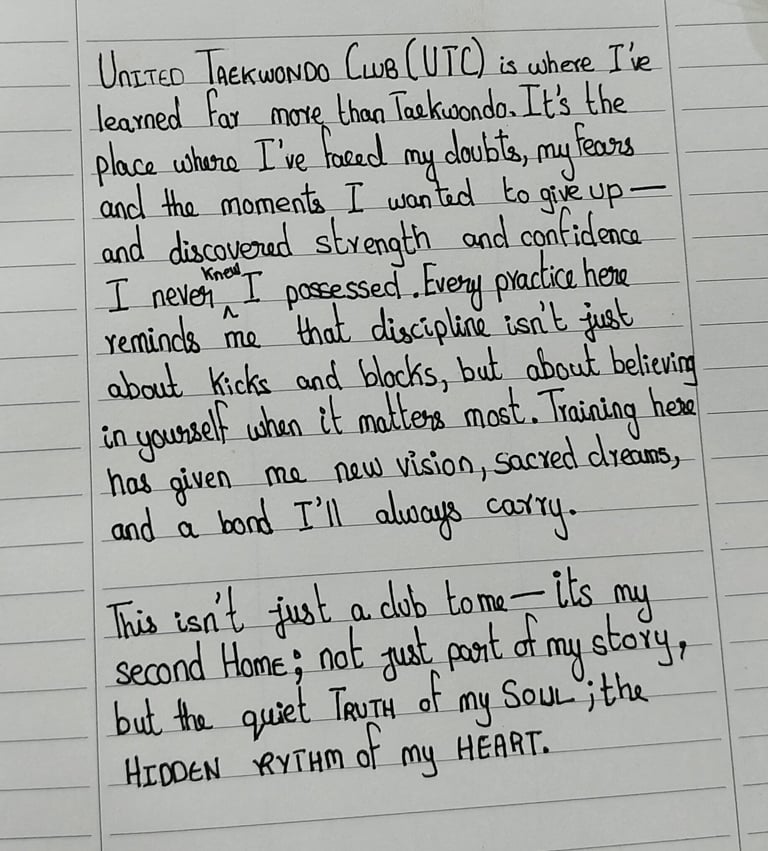 UNITED TAEKWONDO CLUB (UTC) is where I've
learned far more than Taekwondo. It's the
place where I've faced my doubts, my fears
and the moments I wanted to give up —
and discovered strength and confidence
I never knew I possessed. Every practice here
reminds me that discipline isn't just
about kicks and blocks, but about believing
in yourself when it matters most. Training here
has given me new vision, sacred dreams,
and a bond I'll always carry.
This isn't just a club to me — its my
second HOME; not just part of my story,
but the quiet TRUTH of my SOUL; the
HIDDEN RYTHM of my HEART.